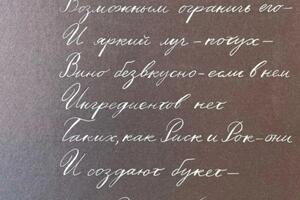 Возможным ограничь его –
И яркий луч – потух –
Вино безвкусно – если в нем
Ингредиентов нет
Таких, как Риск и Рок – они
И создают букет –